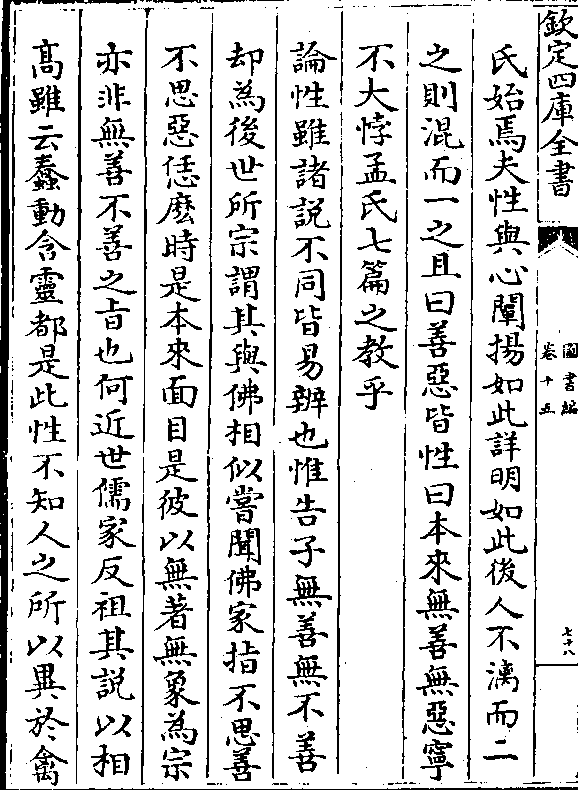 欽定四庫全書
圖書編
卷十五
七十八
氏始焉夫性與心闡揚如此詳明如此後人不漓而二
之則混而一之且曰善惡皆性曰本來無善無惡寧
不大悖孟氏七篇之教乎
論性雖諸說不同皆易辨也惟告子無善無不善
却為後世所宗謂其與佛相似嘗聞佛家指不思善
不思惡恁麼時是本來面目是彼以無著無象為宗
亦非無善不善之旨也何近世儒家反祖其說以相
高雖云蠢動含靈都是此性不知人之所以異於禽